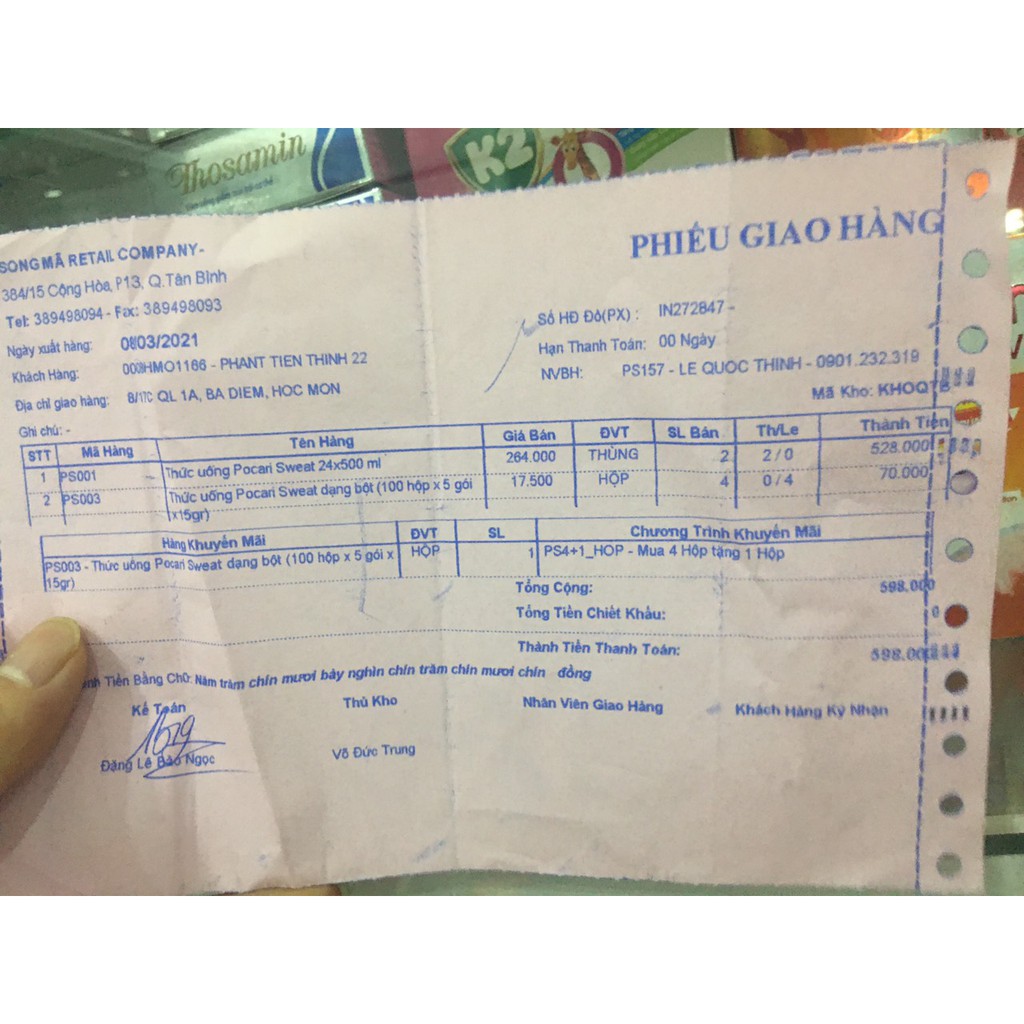 Thosamin
K2
SONG MÃ RETAIL COMPANY-
384/15 Cộng Hòa, P13, Q.Tân Bình
Tel: 389498094 - Fax: 389498093
PHIẾU GIAO HÀNG
Ngày xuất hàng: 08/03/2021
Khách Hàng: 003HMO1166 - PHANT TIEN THINH 22
Địa chỉ giao hàng: B/17C QL 1A, BA DIEM, HOC MON
Ghi chú: -
Số HĐ Đỏ(PX) : IN272847 -
Hạn Thanh Toán: 00 Ngày
NVBH: PS157 - LE QUOC THINH - 0901.232.319
Mã Kho: KHOQTB
STT Mã Hàng Tên Hàng Giá Bán ĐVT SL Bán Th/Le Thành Tiền
1 PS001 Thức uống Pocari Sweat 24x500 ml 264.000 THÙNG 2 2 / 0 528.000
2 PS003 Thức uống Pocari Sweat dạng bột (100 hộp x 5 gói 17.500 HỘP 4 0 / 4 70.000
x15gr)
Hàng Khuyến Mãi ĐVT SL Chương Trình Khuyến Mãi
PS003 - Thức uống Pocari Sweat dạng bột (100 hộp x 5 gói x HỘP 1 PS4+1_HOP - Mua 4 Hộp tặng 1 Hộp
15gr)
Tổng Cộng: 598.000
Tổng Tiền Chiết Khấu: 0
Thành Tiền Thanh Toán: 598.00
Tiền Bằng Chữ: Năm trăm chín mươi bảy nghìn chín trăm chín mươi chín đồng
Kế Toán Thủ Kho Nhân Viên Giao Hàng Khách Hàng Ký Nhận
Đặng Lê Bảo Ngọc Võ Đức Trung